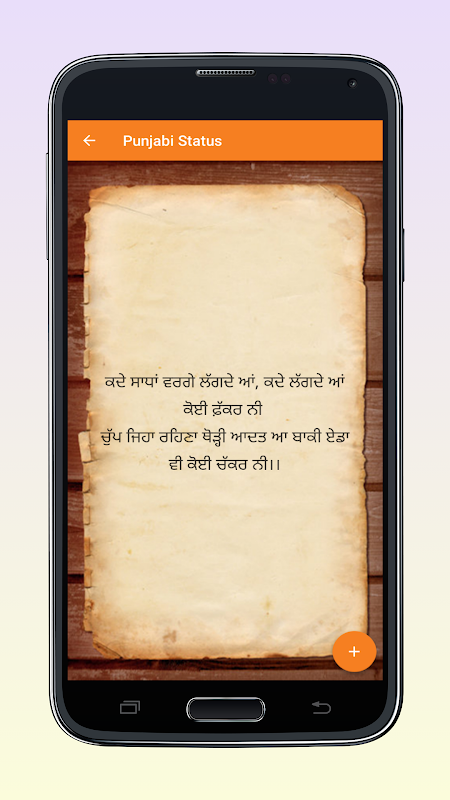 Punjabi Status
ਕਦੇ ਸਾਧਾਂ ਵਰਗੇ ਲੱਗਦੇ ਆਂ, ਕਦੇ ਲੱਗਦੇ ਆਂ
ਕੋਈ ਫ਼ੱਕਰ ਨੀ
ਚੁੱਪ ਜਿਹਾ ਰਹਿਣਾ ਥੋੜ੍ਹੀ ਆਦਤ ਆ ਬਾਕੀ ਏਡਾ
ਵੀ ਕੋਈ ਚੱਕਰ ਨੀ।।